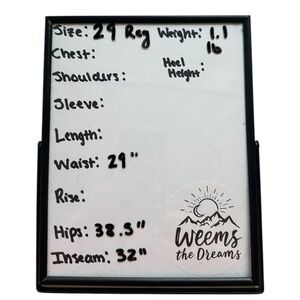 Size: 29 Reg Weight: 1.1 lb
Chest:
Heel Height:
Shoulders:
Sleeve:
Length:
Waist: 29"
Rise:
Hips: 38.5"
Inseam: 32"
Weems
the Dreams